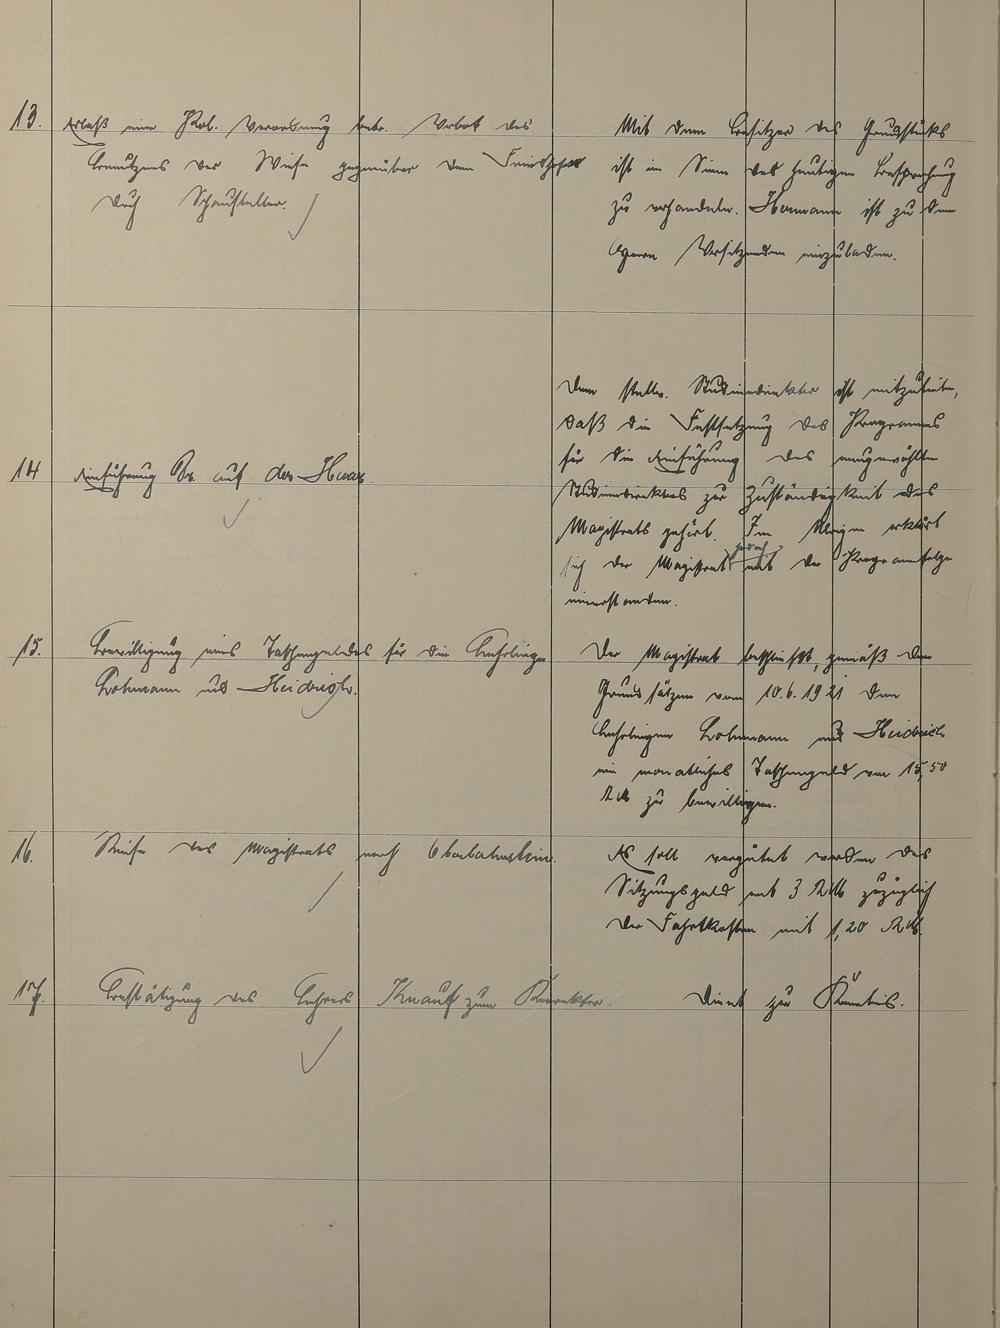 13.
Erlaß einer Pol. Verordnung betr. Verbot des
Benutzens der Wiese gegenüber dem Friedhofe
durch Schausteller.
Mit dem Besitzer des Grundstücks
ist im Sinne der heutigen Besprechung
zu verhandeln. Hermann ist zu dem
Herrn Vorsitzenden einzuladen.
14
Einführung Dr. auf der Haar
Dem stellv. Studiendirektor ist mitzuteilen,
daß die Festsetzung des Programms
für die Einführung des neugewählten
Studiendirektors zur Zuständigkeit des
Magistrats gehört. Im übrigen erklärt
jedoch
sich der Magistrat mit der Programmfolge
einverstanden.
15.
Bewilligung eines Taschengeldes für die Lehrlinge
Lohmann und Heidrich.
Der Magistrat beschließt, gemäß den
Grundsätzen vom 10.6.1921 den
Lehrlingen Lohmann und Heidrich
ein monatliches Taschengeld von 15,50
RM zu bewilligen.
16.
Reise des Magistrats nach
Es soll vergütet werden das
Sitzungsgeld mit 3 RM zuzüglich
der Fahrtkosten mit 1,20 RM.
17.
Bestätigung des Lehrers Knauf zum Konrektor.
Dient zur Kenntnis.